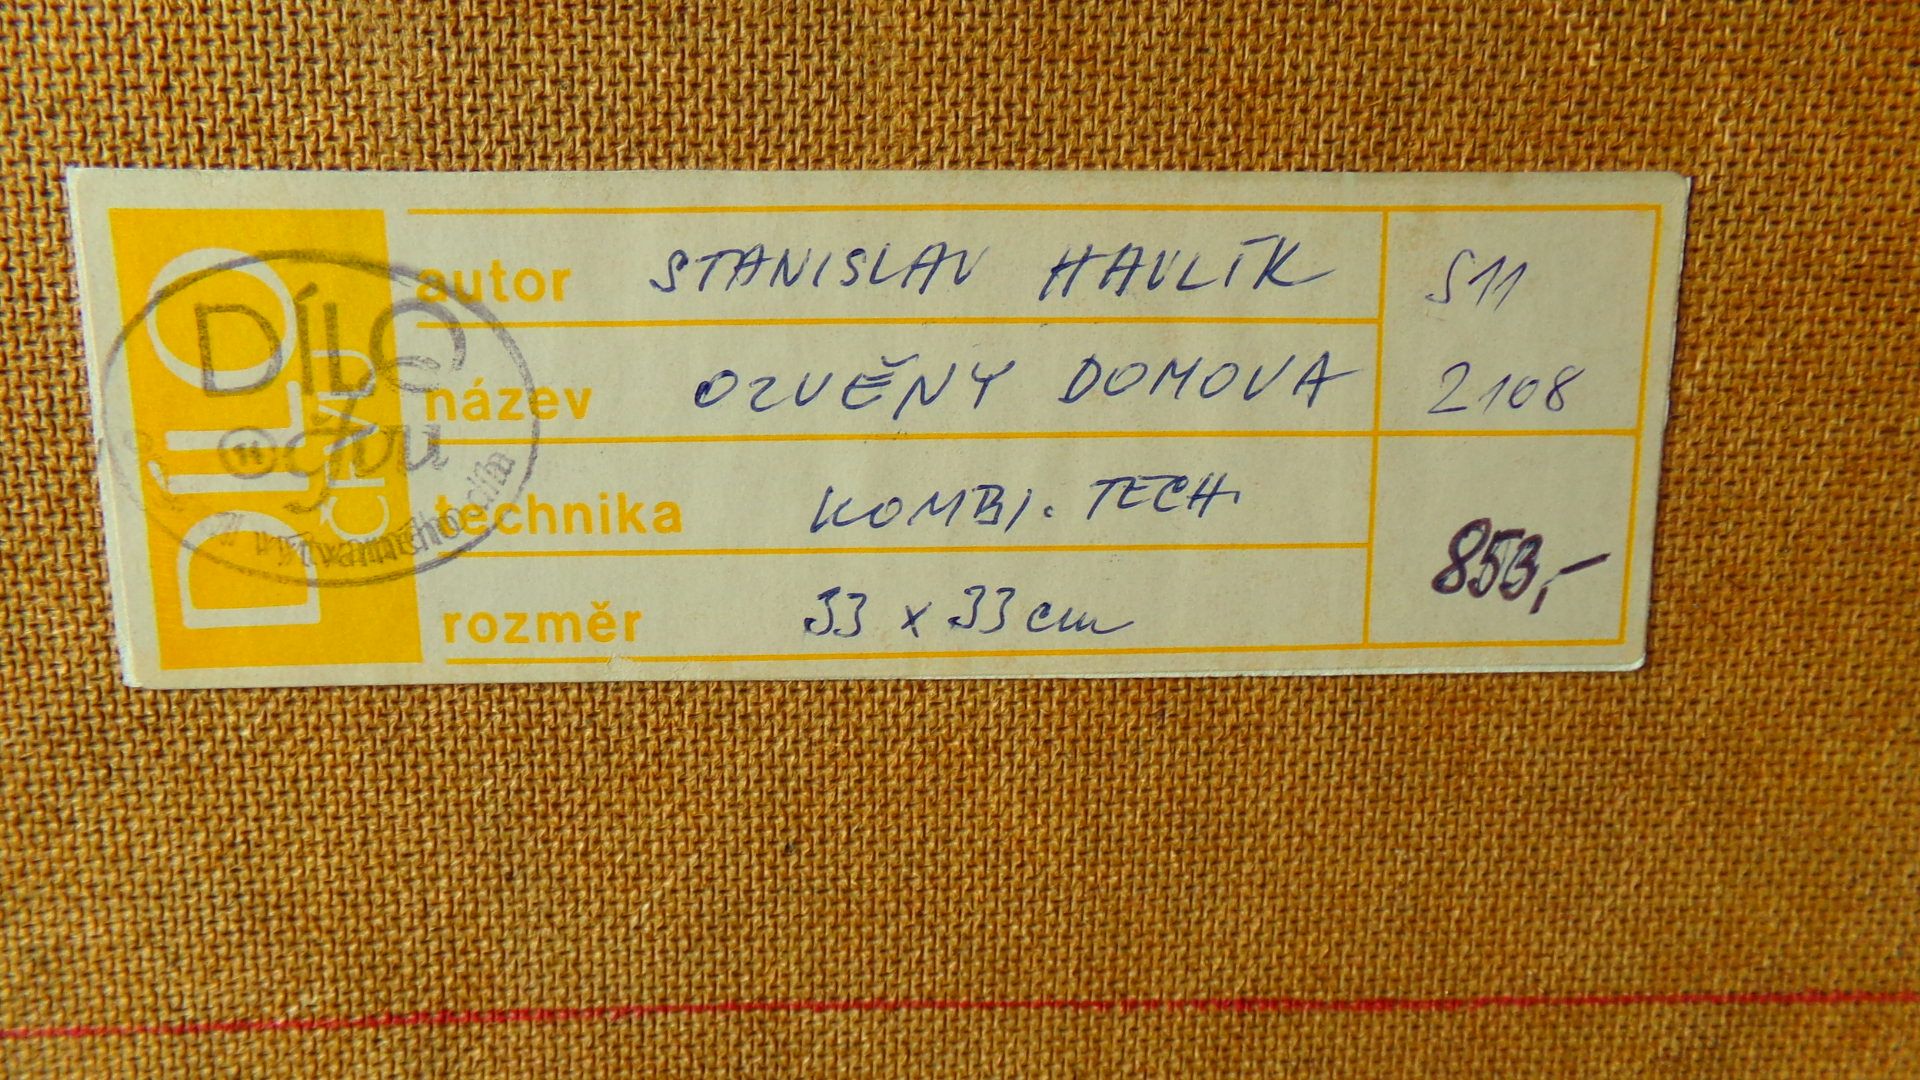 DÍLO
ČFVU
autor STANISLAV HAVLÍK
název OZVĚNY DOMOVA
technika KOMBI. TECH.
rozměr 33 x 33 cm
S11
2108
DÍLO
čfvu
výtvarného díla